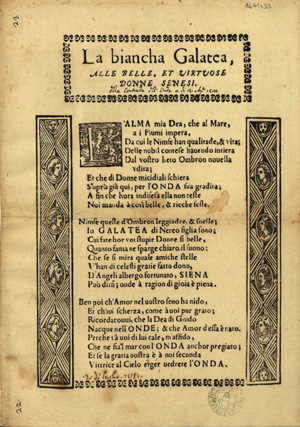 La biancha Galatea,
ALLE BELLE, ET VIRTUOSE
DONNE SENESI.
'ALMA mia Dea; che al Mare,
a i Fiumi impera,
Da cui le Ninfe han qualitade, & vita;
Delle nobil contese havendo intiera
Dal vostro lieto Ombron novella
vdita;
Et che di Donne micidiali schiera
S'oprà già quì, per l'ONDA sua gradita;
A fin che hora indifesa ella non reste
Noi manda à così belle, & ricche feste.
Ninfe queste d'Ombron leggiadre, & snelle;
Io GALATEA di Nereo figlia sono;
Cui fare hor vostupir Donne sì belle,
Quanto fama ne sparge chiaro il suono:
Che se si mira quale amiche stelle
V'han di celesti gratie fatto dono,
D'Angeli albergo fortunato, SIENA
Può dirsi; onde à ragion di gioia è piena.
Ben poi ch'Amor nel vostro seno ha nido,
Et ch'ivi scherza, come à voi pur grato;
Ricordarovvi, che la Dea di Gnido
Nacque nell'ONDE; & che Amor d'essa è nato.
Perche s'à voi di lui cale, m'affido,
Che ne sia'l mar con l'ONDA anchor pregiato;
Et se la gratia vostra è à noi seconda
Vittrice al Cielo erger vedrete l'ONDA.